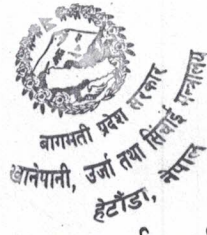 बागमती प्रदेश सरकार
खानेपानी, उर्जा तथा सिंचाई मन्त्रालय
हेटौंडा, नेपाल